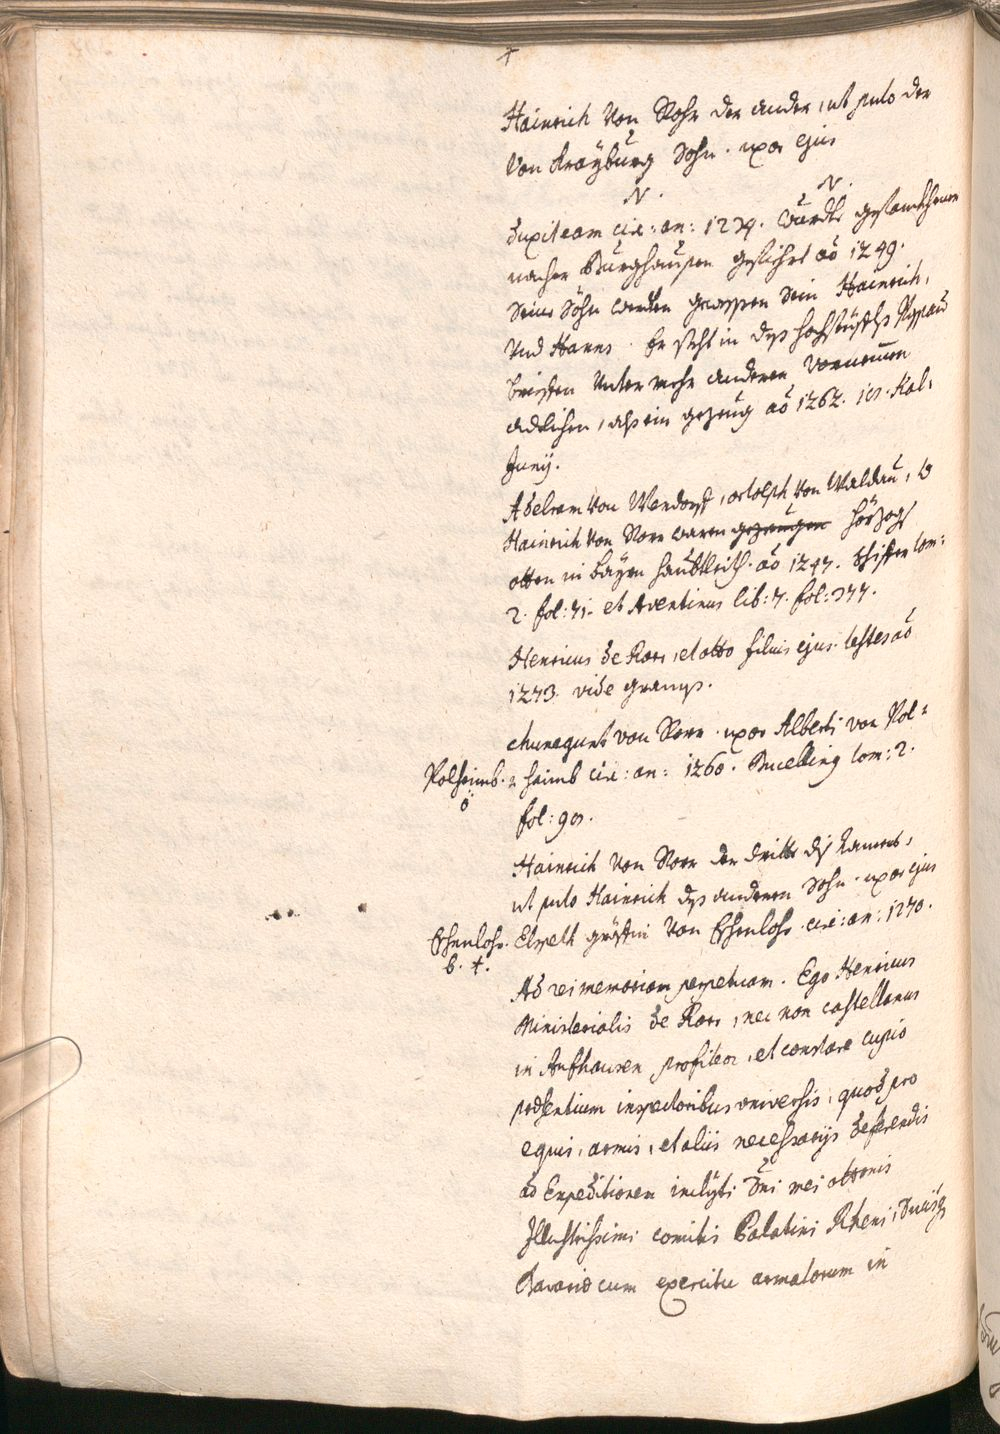 +
Hainrich Von Rohr der ander, ut puto der
Von Kraÿburg Sohn. uxor ejus
N. N.
duxit eam cir: an: 1234. wurdte gefanckhener
nacher Burghausen gefiehrt aō 1249.
Seine Söhn werden gewessen sein Hainrich,
Vnd Hanns. Er steht in dess hochstüffts Passau
brieffen Vnter mehr anderen Vornemen
adelichen, alss ein gezeug aō 1262. 10. Kal:
Junij.
Adelram Von Wendorff, ortolph Von Waldau,
Hainrich Von Rorr waren gezeugen Hörzogs
otten in Baÿrn haubtleith. aō 1247. tom:
2. fol: 71. et Aventinus lib: 7. fol: 377.
Henricus de Rorr, et otto filius ejus. testes aō
1273. vide
chunegunt von Rorr. uxor Alberti von Pol=
Polheimb. haimb cir: an: 1260. Bucelling tom: 2.
ö
fol: 90.
Hainrich Von Rorr der dritte diss Namens,
ut puto Hainrich dess anderen Sohn. uxor ejus
Eschenlohr. Elspeth gräffin Von Eschenlohr. cir: an: 1270.
b. +.
Ad rei memoriam perpetuam. Ego Henricus
Ministerialis de Rorr, nec non castellanus
in Aufhausen profiteor, et constare cupio
prӕsentium inspectoribus vniversis, quod pro
equis, armis, et aliis necessarijs deferendis
ad Expeditionem inclÿti Dni mei ottonis
Illustrissimi comitis Palatini Rheni, Ducisq
Bavariӕ cum exercitu armatorum in